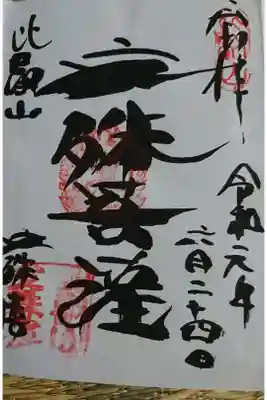 奉拝
令和元年
六月二十四日
文殊菩薩
比叡山
文殊